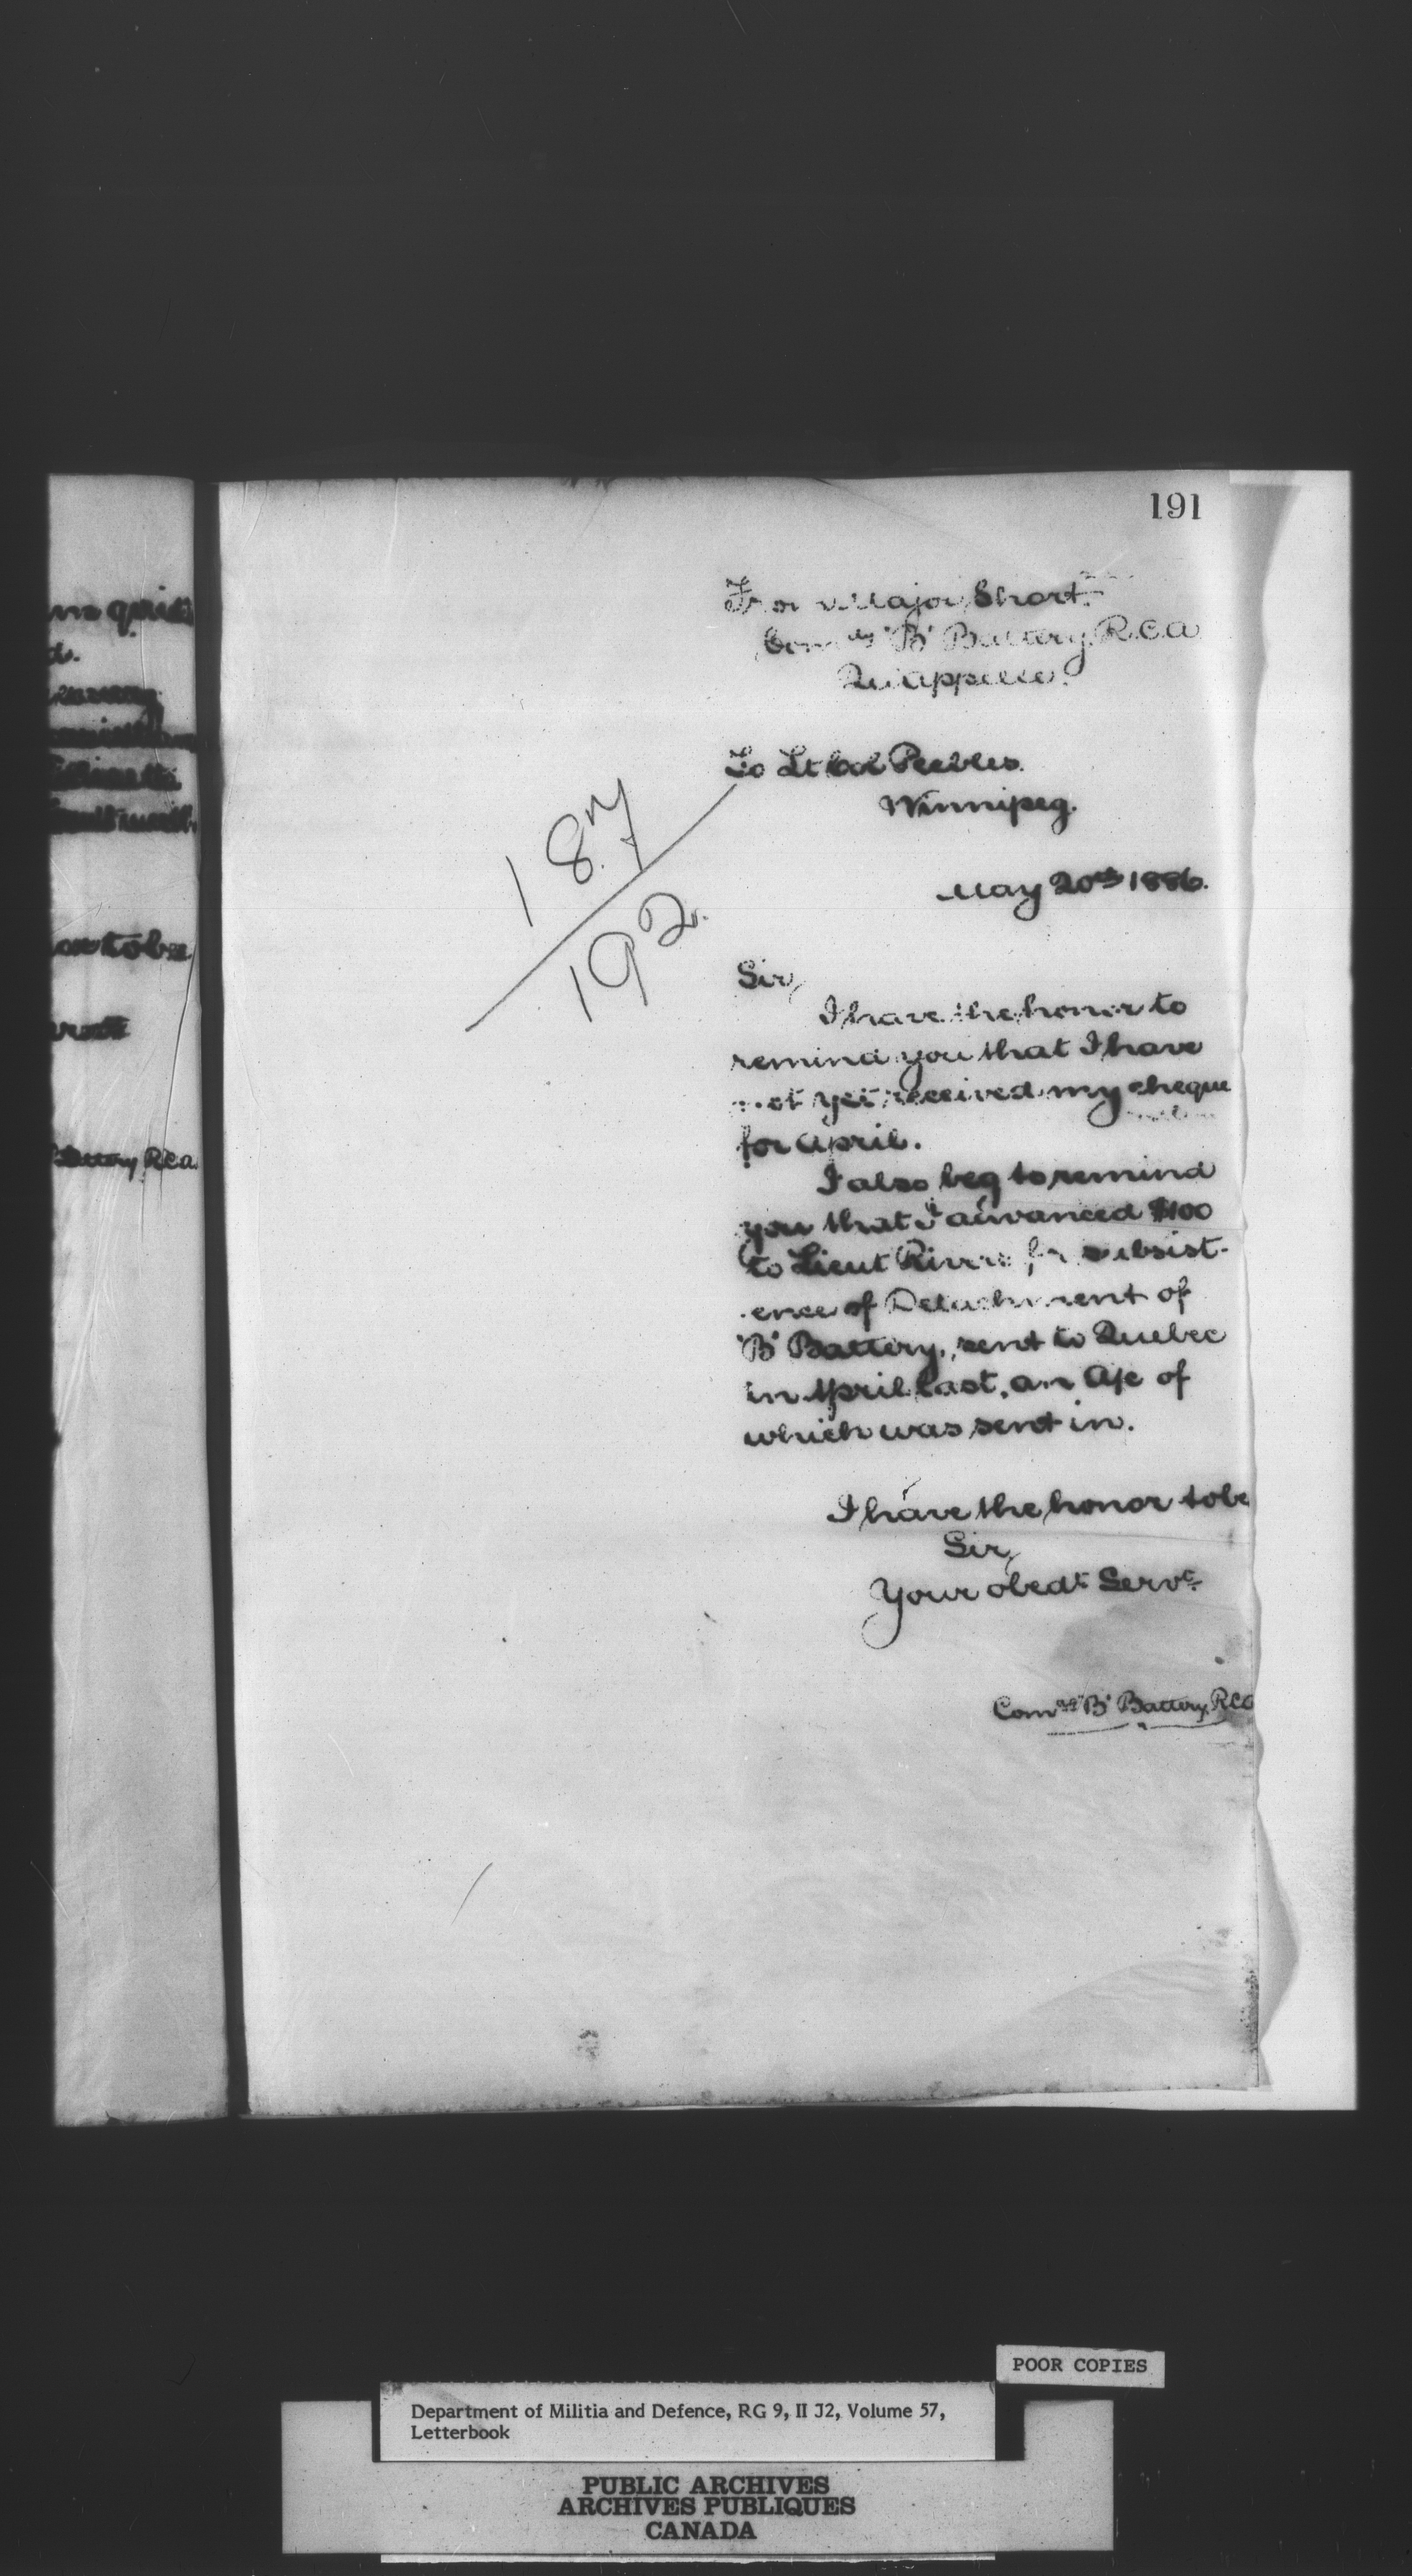 191
From Major Short
Comdg 'B' Battery R.C.A
Qu'appelle.
To Lt Col Peebles.
Winnipeg.
May 20th 1886.
187
192
Sir,
I have the honor to
remind you that I have
not yet received my cheque
for April.
I also beg to remind
you that I advanced $100
to Lieut Rivers for subsist-
ence of Detachment of
'B' Battery, sent to Quebec
in April last, an A/c of
which was sent in.
I have the honor to be
Sir,
Your obedt Servt
Comdg 'B' Battery RCA
or to be
Battery RCA
POOR COPIES
Department of Militia and Defence, RG 9, II J2, Volume 57,
Letterbook
PUBLIC ARCHIVES
ARCHIVES PUBLIQUES
CANADA